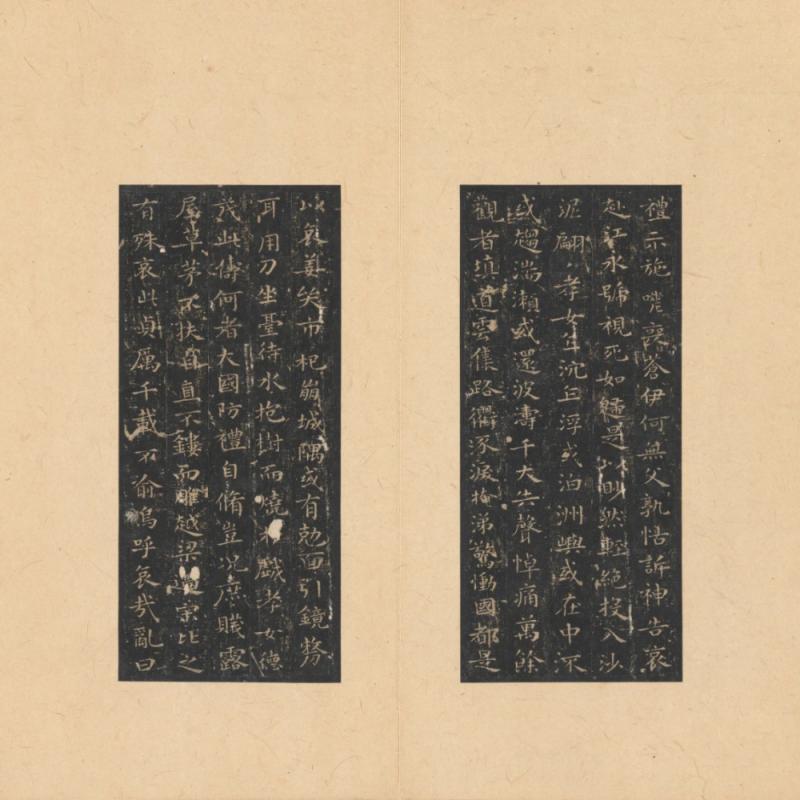 禮未施嗟喪蒼伊何無父孰怙訴神告哀
赴江永號視死如歸是以眇然輕絕投入沙
泥翩孝女乍沉乍浮或泊洲嶼或在中流
或趨湍瀨或還波濤千夫失聲悼痛萬餘
觀者填道雲集路衢流淚掩涕驚慟國都是
以哀姜哭市杞崩城隅或有勊面引鏡剺
耳用刀坐臺待水抱樹而燒於戲孝女德
茂此儔何者大國防禮自脩豈況庶賤露
屋草茅不扶自直不鏤而雕越梁過宋比之
有殊哀此貞厲千載不渝嗚呼哀哉亂曰